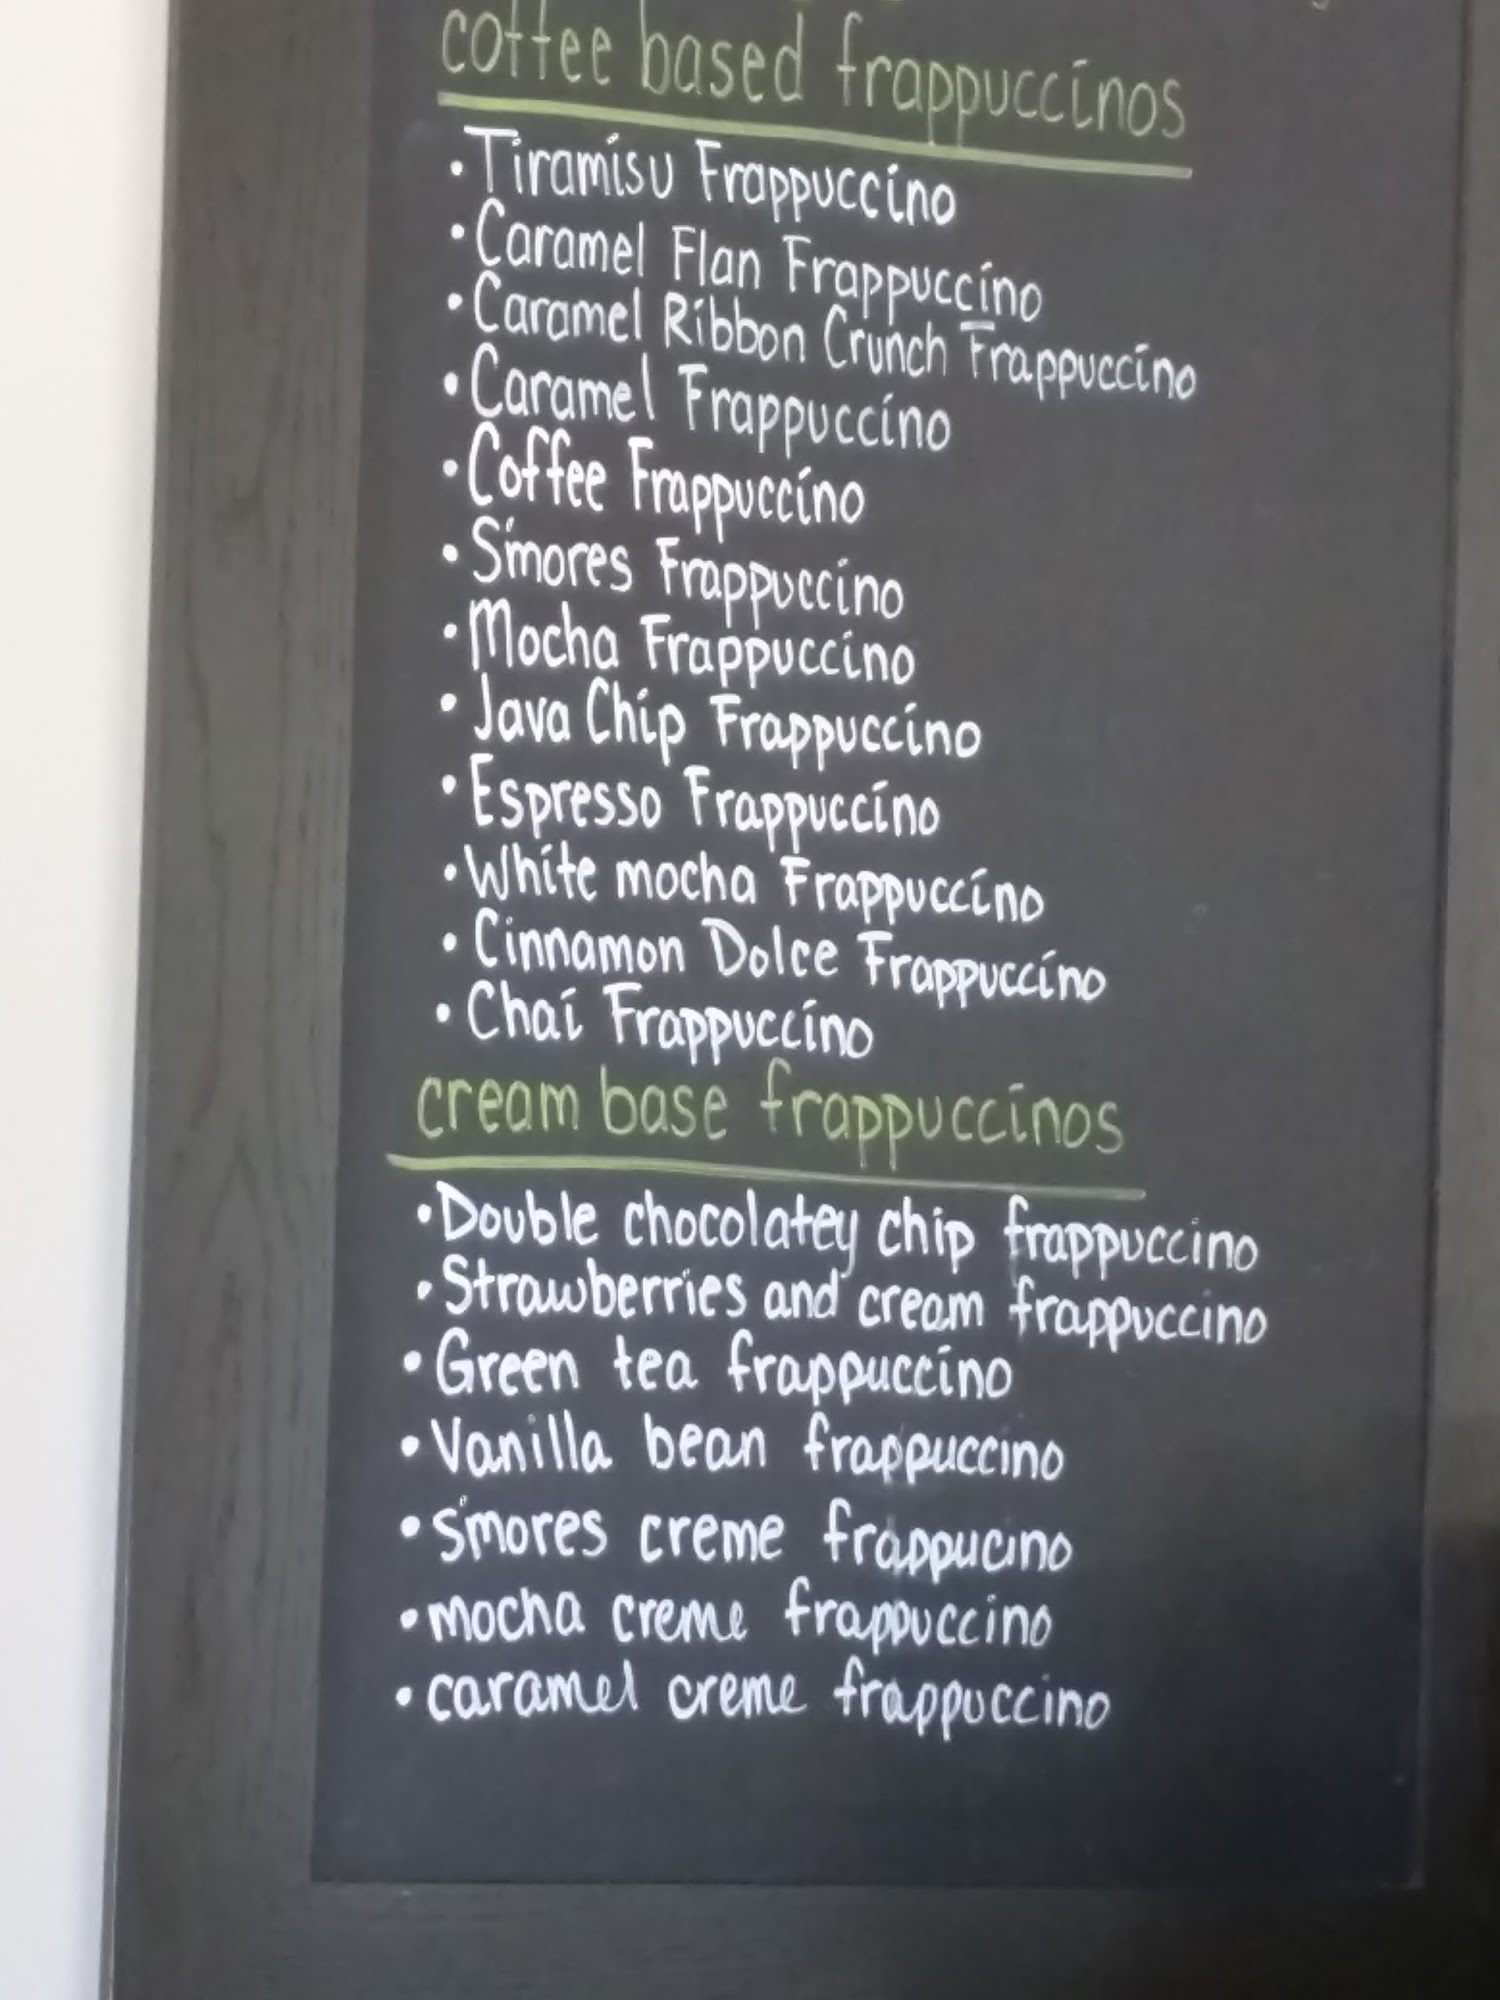 coffee based frappuccinos
• Tiramisu Frappuccino
• Caramel Flan Frappuccino
• Caramel Ribbon Crunch Frappuccino
• Caramel Frappuccino
• Coffee Frappuccino
• S'mores Frappuccino
• Mocha Frappuccino
• Java Chip Frappuccino
• Espresso Frappuccino
• White mocha Frappuccino
• Cinnamon Dolce Frappuccino
• Chai Frappuccino
cream base frappuccinos
• Double chocolatey chip frappuccino
• Strawberries and cream frappuccino
• Green tea frappuccino
• Vanilla bean frappuccino
• S'mores creme frappucino
• mocha creme frappuccino
• caramel creme frappuccino